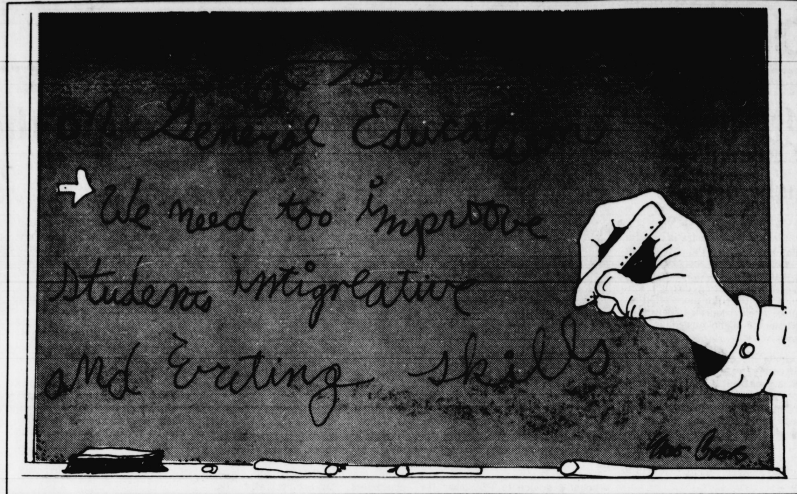 on General Education
We need too improove
students intigreative
and writing skills